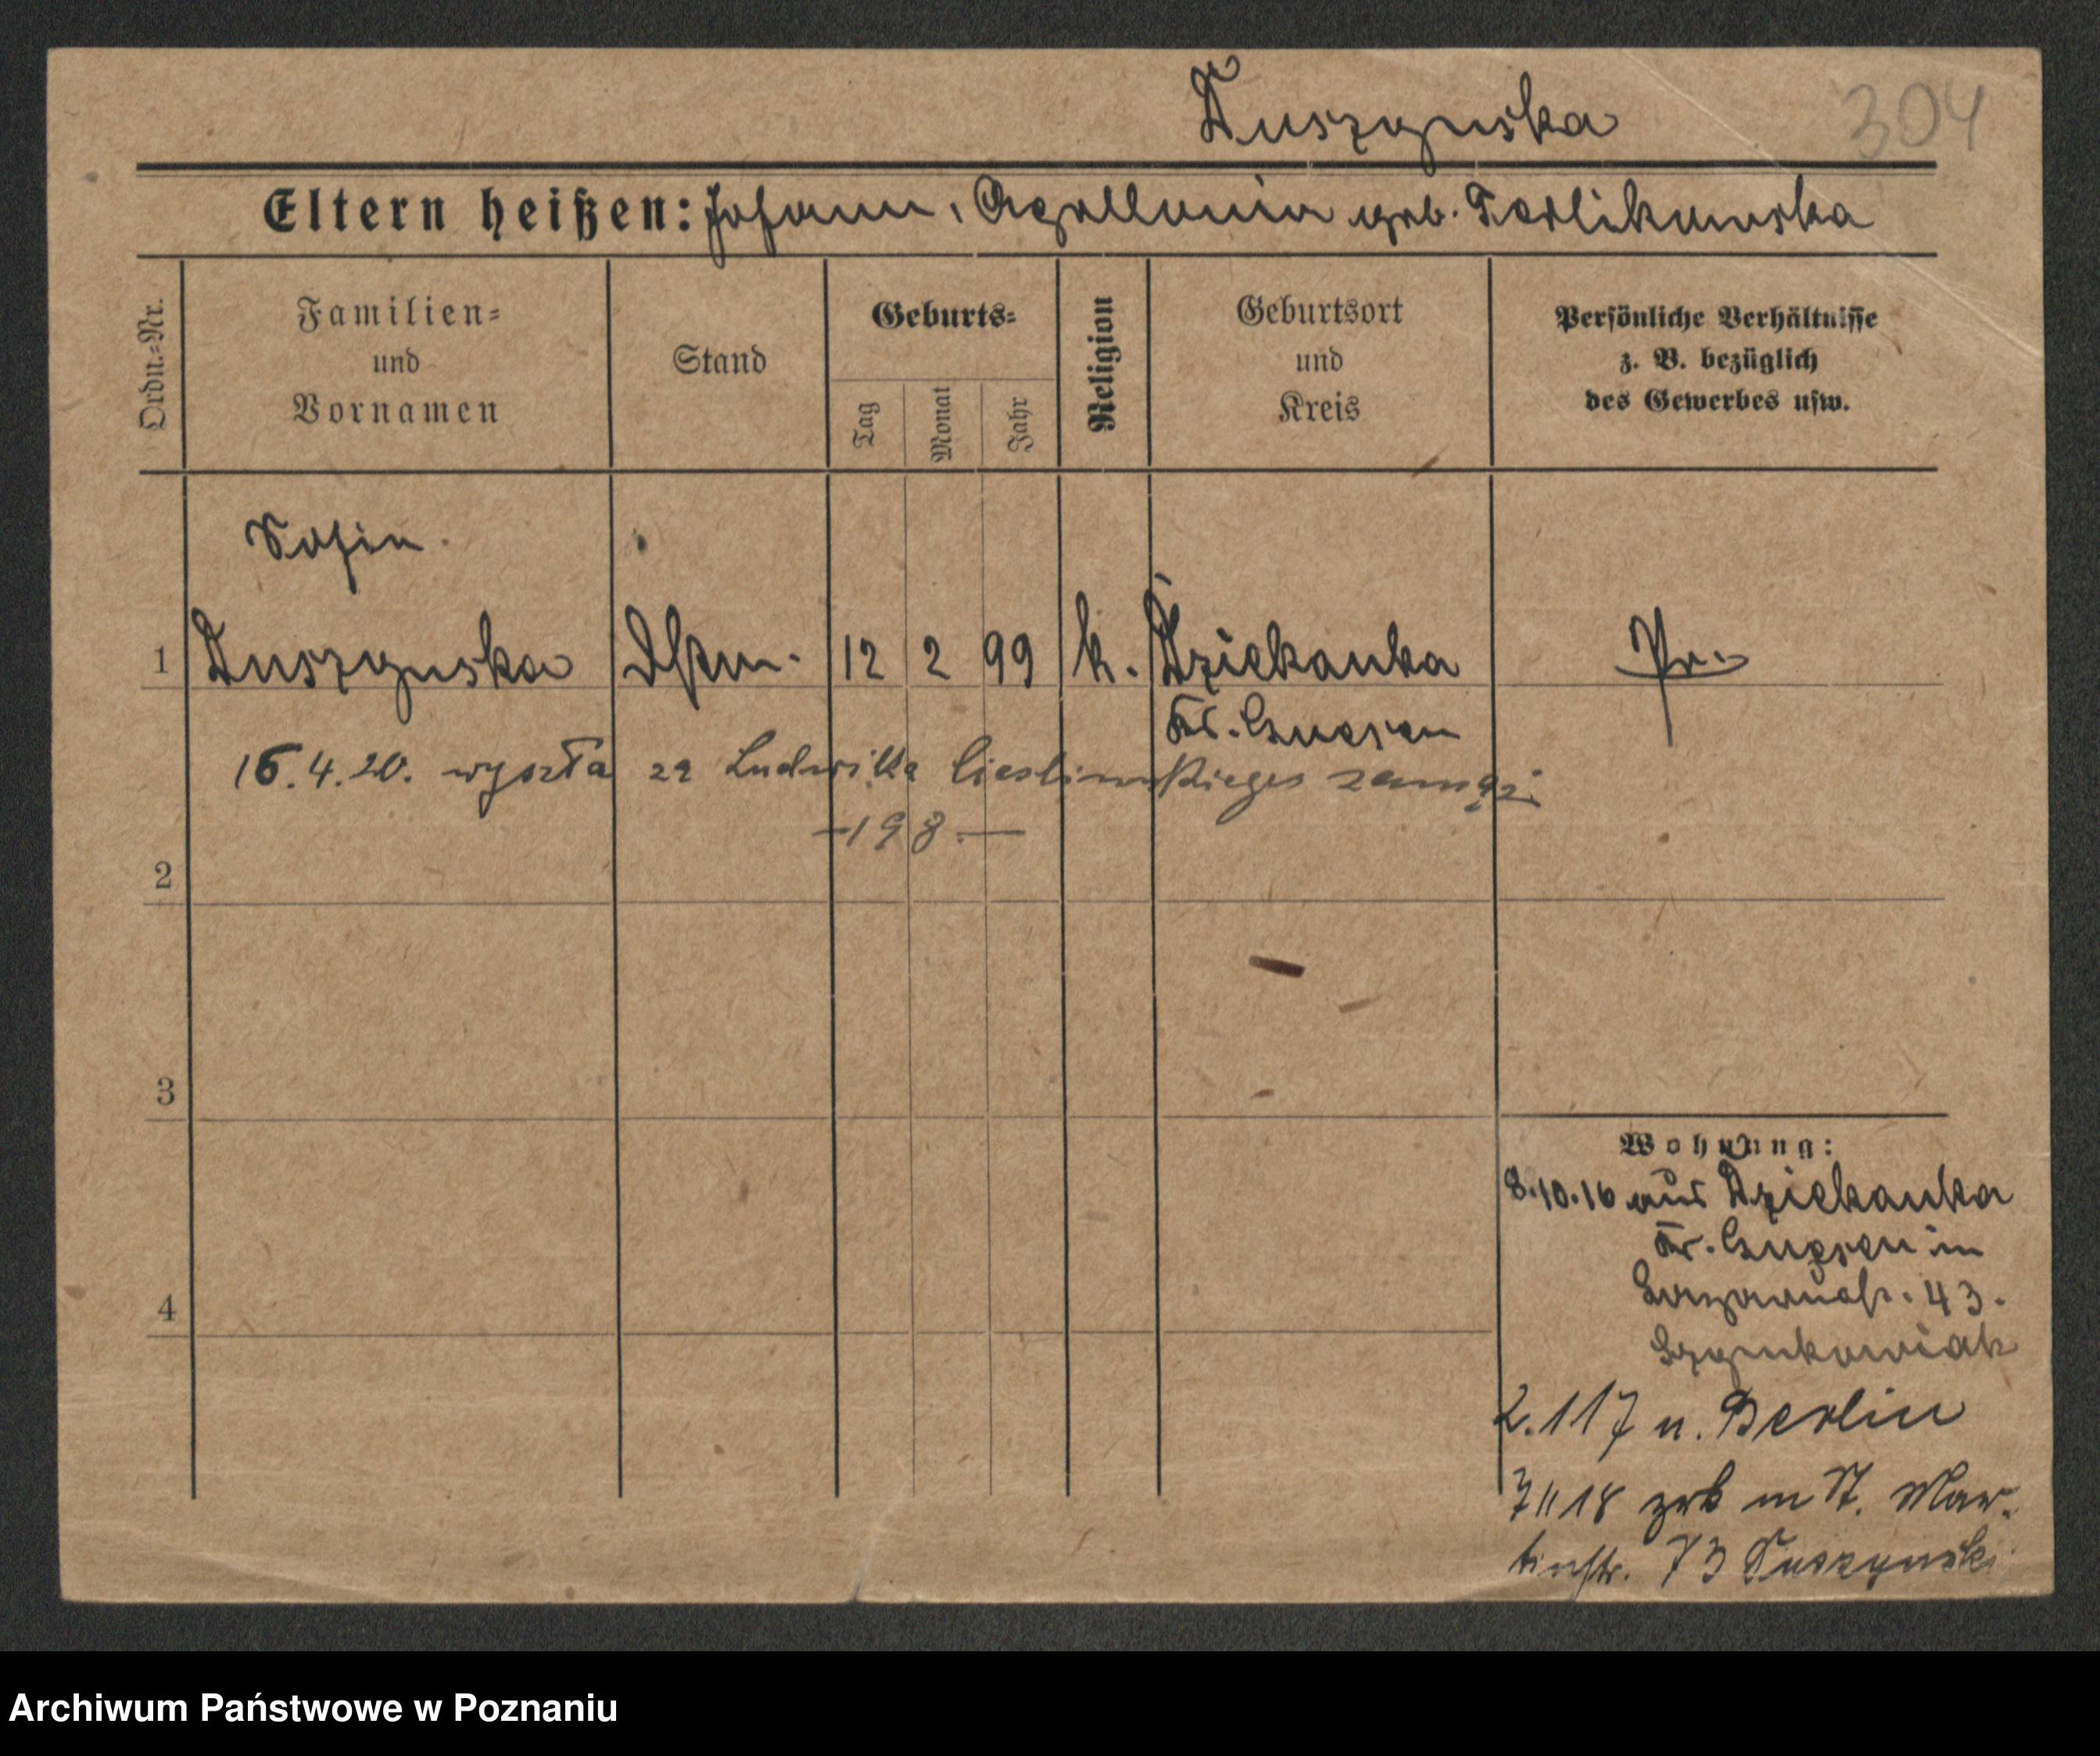 Duszynska
304
Eltern heißen: Johann, Apollonia geb. Terlikowska
Ordn.=Nr.
Familien=
und
Vornamen
Stand
Geburts=
Tag
Monat
Jahr
Religion
Geburtsort
und
Kreis
Persönliche Verhältnisse
z. B. bezüglich
des Gewerbes usw.
Sofia
1 Duszynska 12 2 99 k. Dziekanka Pr.
Kr. Gnesen
15.4.20. wyszła za Ludwika Cieslinskiego zamąż
—198.—
2
3
4
Wohnung:
8.10.16 aus Dziekanka
Kr. Gnesen in
43.
Szymkowiak
2.1 17 n. Berlin
7 11 18 zrk in St. Mar-
tinstr. 73 Duszynski
Archiwum Państwowe w Poznaniu